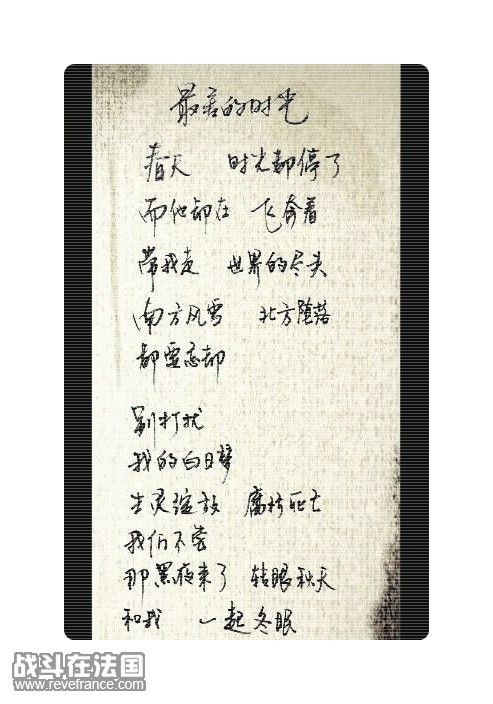 最后的时光
春天 时光都停了
而他却在 飞奔着
带我走 世界的尽头
南方风雪 北方堕落
都要忘却
别打扰
我的白日梦
生灵绽放 腐朽死亡
我们不管
那黑夜来了 转眼秋天
和我 一起冬眠
战斗在法国
www.revefrance.com